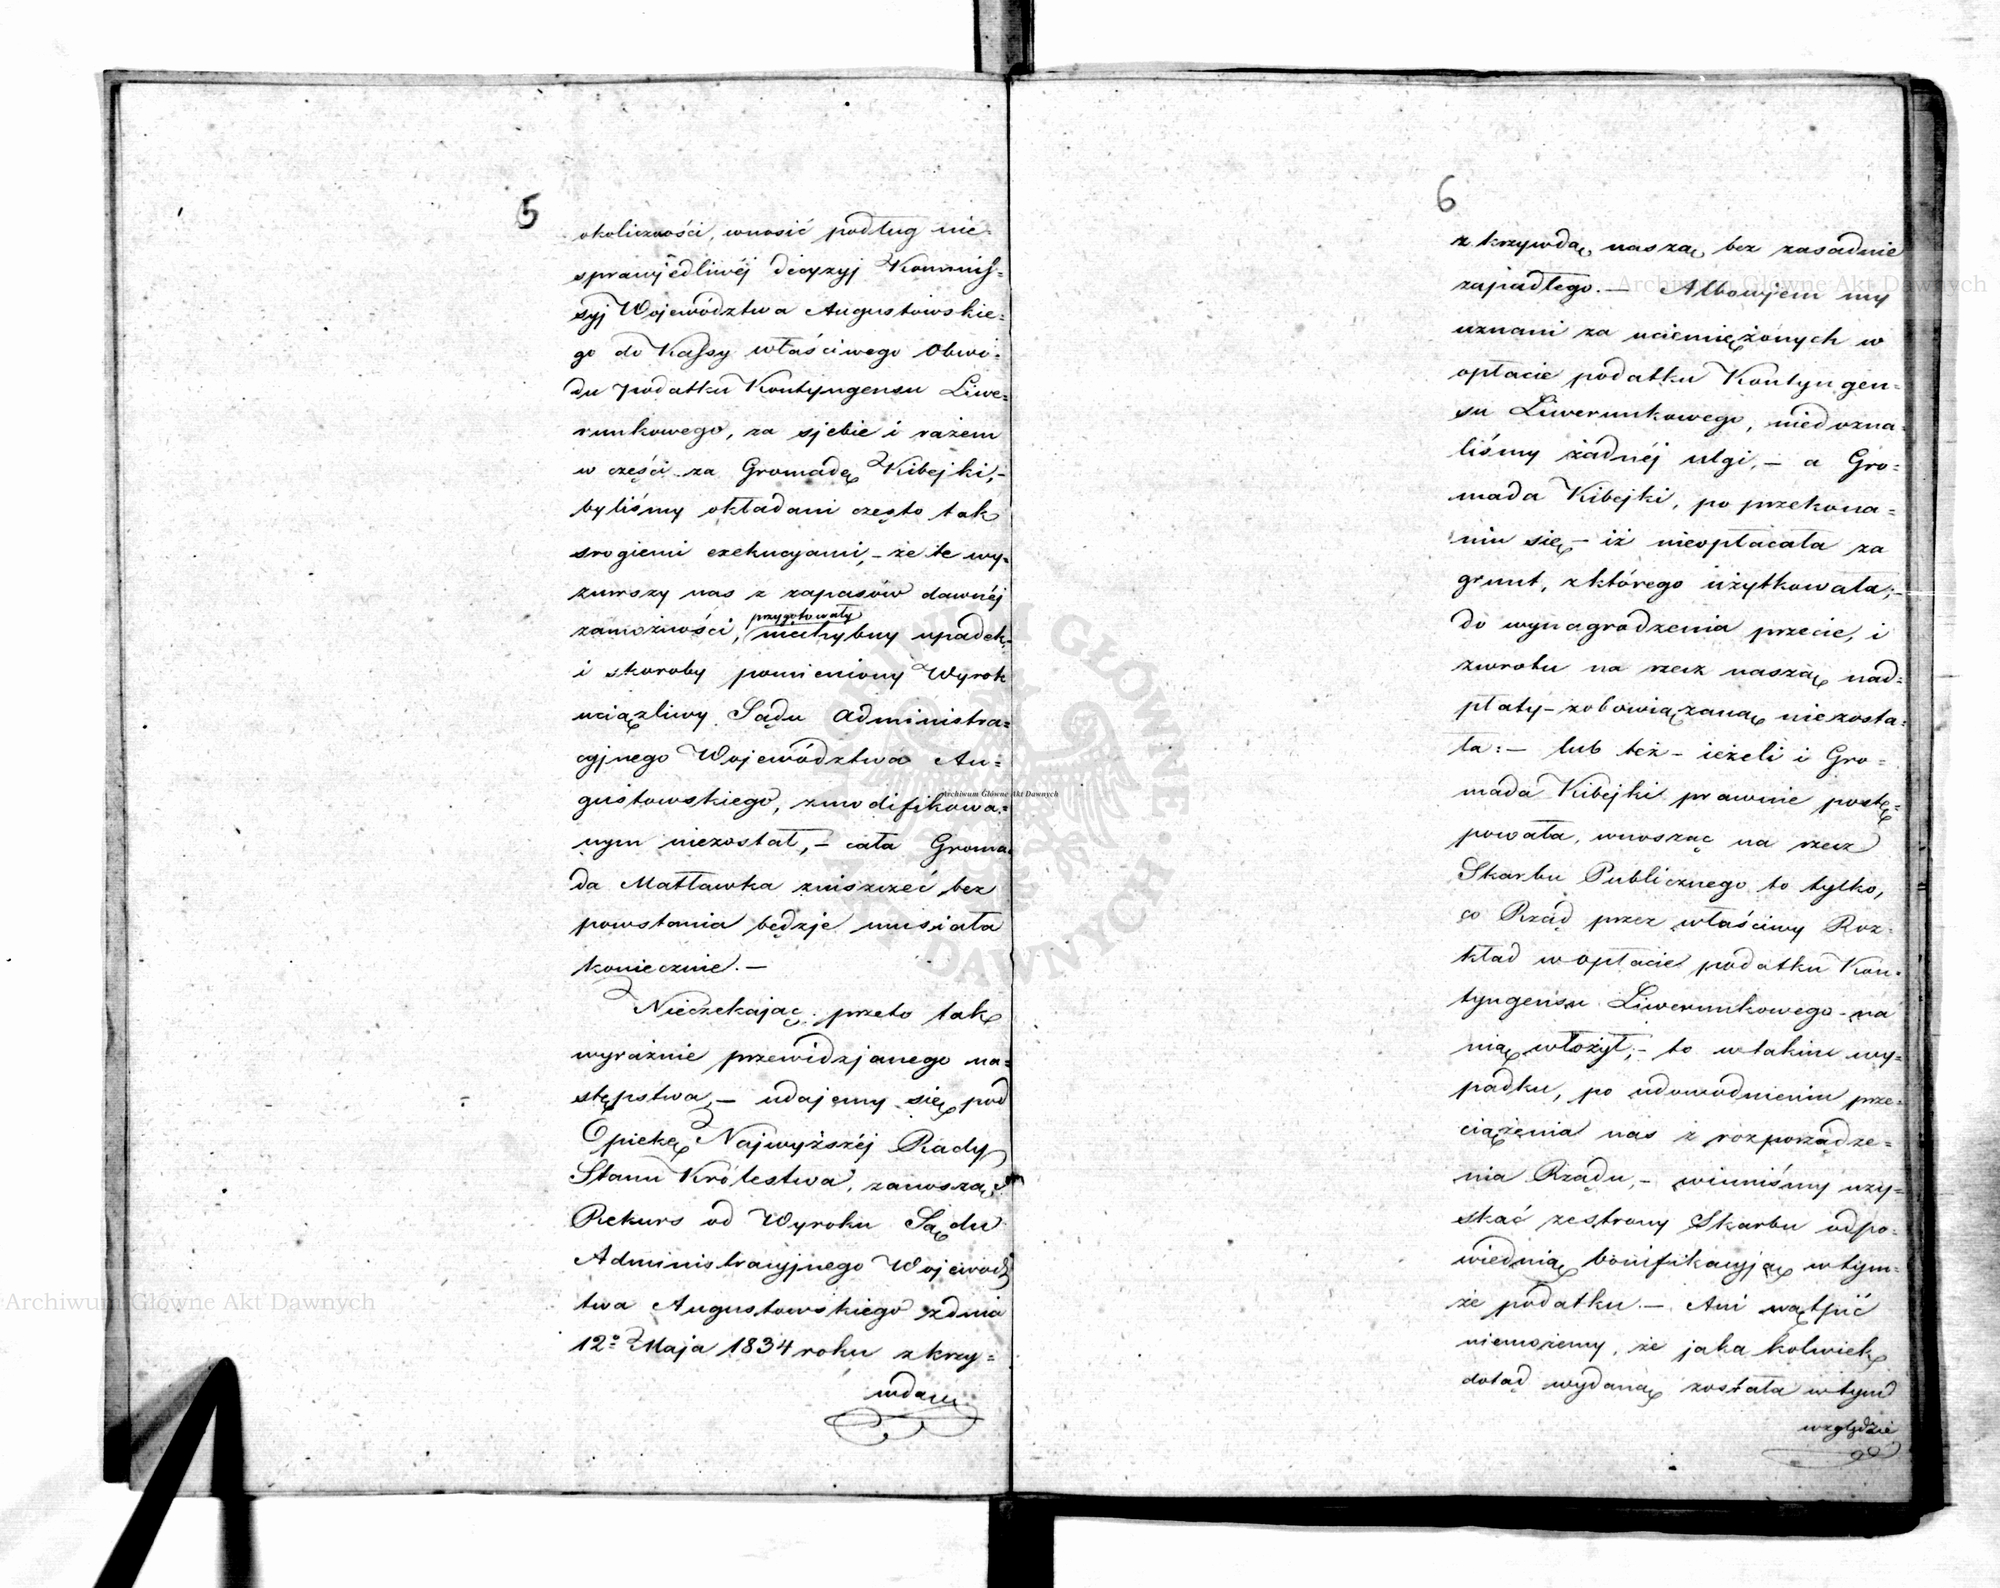 5
okoliczności, wnosić podług nie-
sprawjedliwéj decyzyj Kommis-
syj Województwa Augustowskie-
go do Kassy właściwego Obwo-
du podatku Kontyngensu Liwe-
runkowego, za sjebie i razem
w części za Gromadę Kibejki,-
byliśmy okładani często tak
srogiemi exekucyjami, - że te wy-
zuwszy nas z zapasów dawnéj
przygotowały
zamożności, niechybny upadek,
i skoroby pomieniony Wyrok
uciążliwy Sądu Administra-
cyjnego Województwa Au-
gustowskiego, zmodifikowa-
nym niezostał, - cała Groma-
da Matławka zniszczeć bez
powstania będzje musiała
koniecznie. -
Nieczekając przeto tak
wyraźnie przewidzjanego na-
stępstwa, - udajemy się pod
Opiekę Najwyższéj Rady
Stanu Królestwa, zanosząc
Rekurs od Wyroku Sądu
Administracyjnego Wojewodz
twa Augustowskiego zdnia
12º Maja 1834 roku z krzy-
wdą
6
z krzywdą naszą bez zasadnie
zapadłego. - Albowjem my
uznani za uciemiężonych w
opłacie podatku Kontyngen-
su Liwerunkowego, niedozna-
liśmy żadnéj ulgi, - a Gro-
mada Kibejki, po przekona-
niu się - iż nieopłacała za
grunt, z którego użytkowała;-
do wynagrodzenia przecie, i
zwrotu na rzecz naszą nad-
płaty - zobowiązaną niezosta-
ła: - lub też - ieżeli i Gro-
mada Kibejki prawnie postę-
powała, wnosząc na rzecz
Skarbu Publicznego to tylko,
co Rząd przez właściwy Roz-
kład w opłacie podatku Kon-
tyngensu Liwerunkowego - na
nią włożył; - to wtakim wy-
padku, po udowodnieniu prze-
ciążenia nas z rozporządze-
nia Rządu, - winniśmy uzy-
skać zestrony Skarbu odpo-
wiednią bonifikacyją wtym-
że podatku. - Ani wątpić
niemożemy, że jaka kolwiek
dotąd wydaną została wtym
względzie
Archiwum Główne Akt Dawnych
Archiwum Główne Akt Dawnych
Archiwum Główne Akt Dawnych
ARCHIWUM GŁÓWNE AKT DAWNYCH